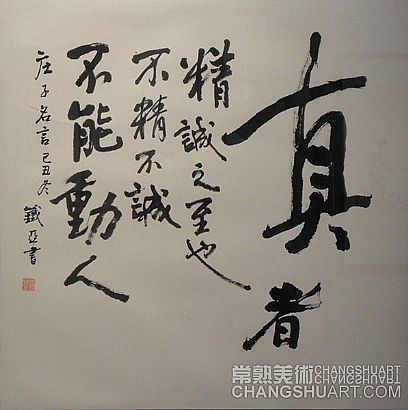 真者
精誠之至也
不精不誠
不能動人
庄子名言己丑冬
鐵亞書
常熟美術CHANGSHUART.COM
CHANGSHUART